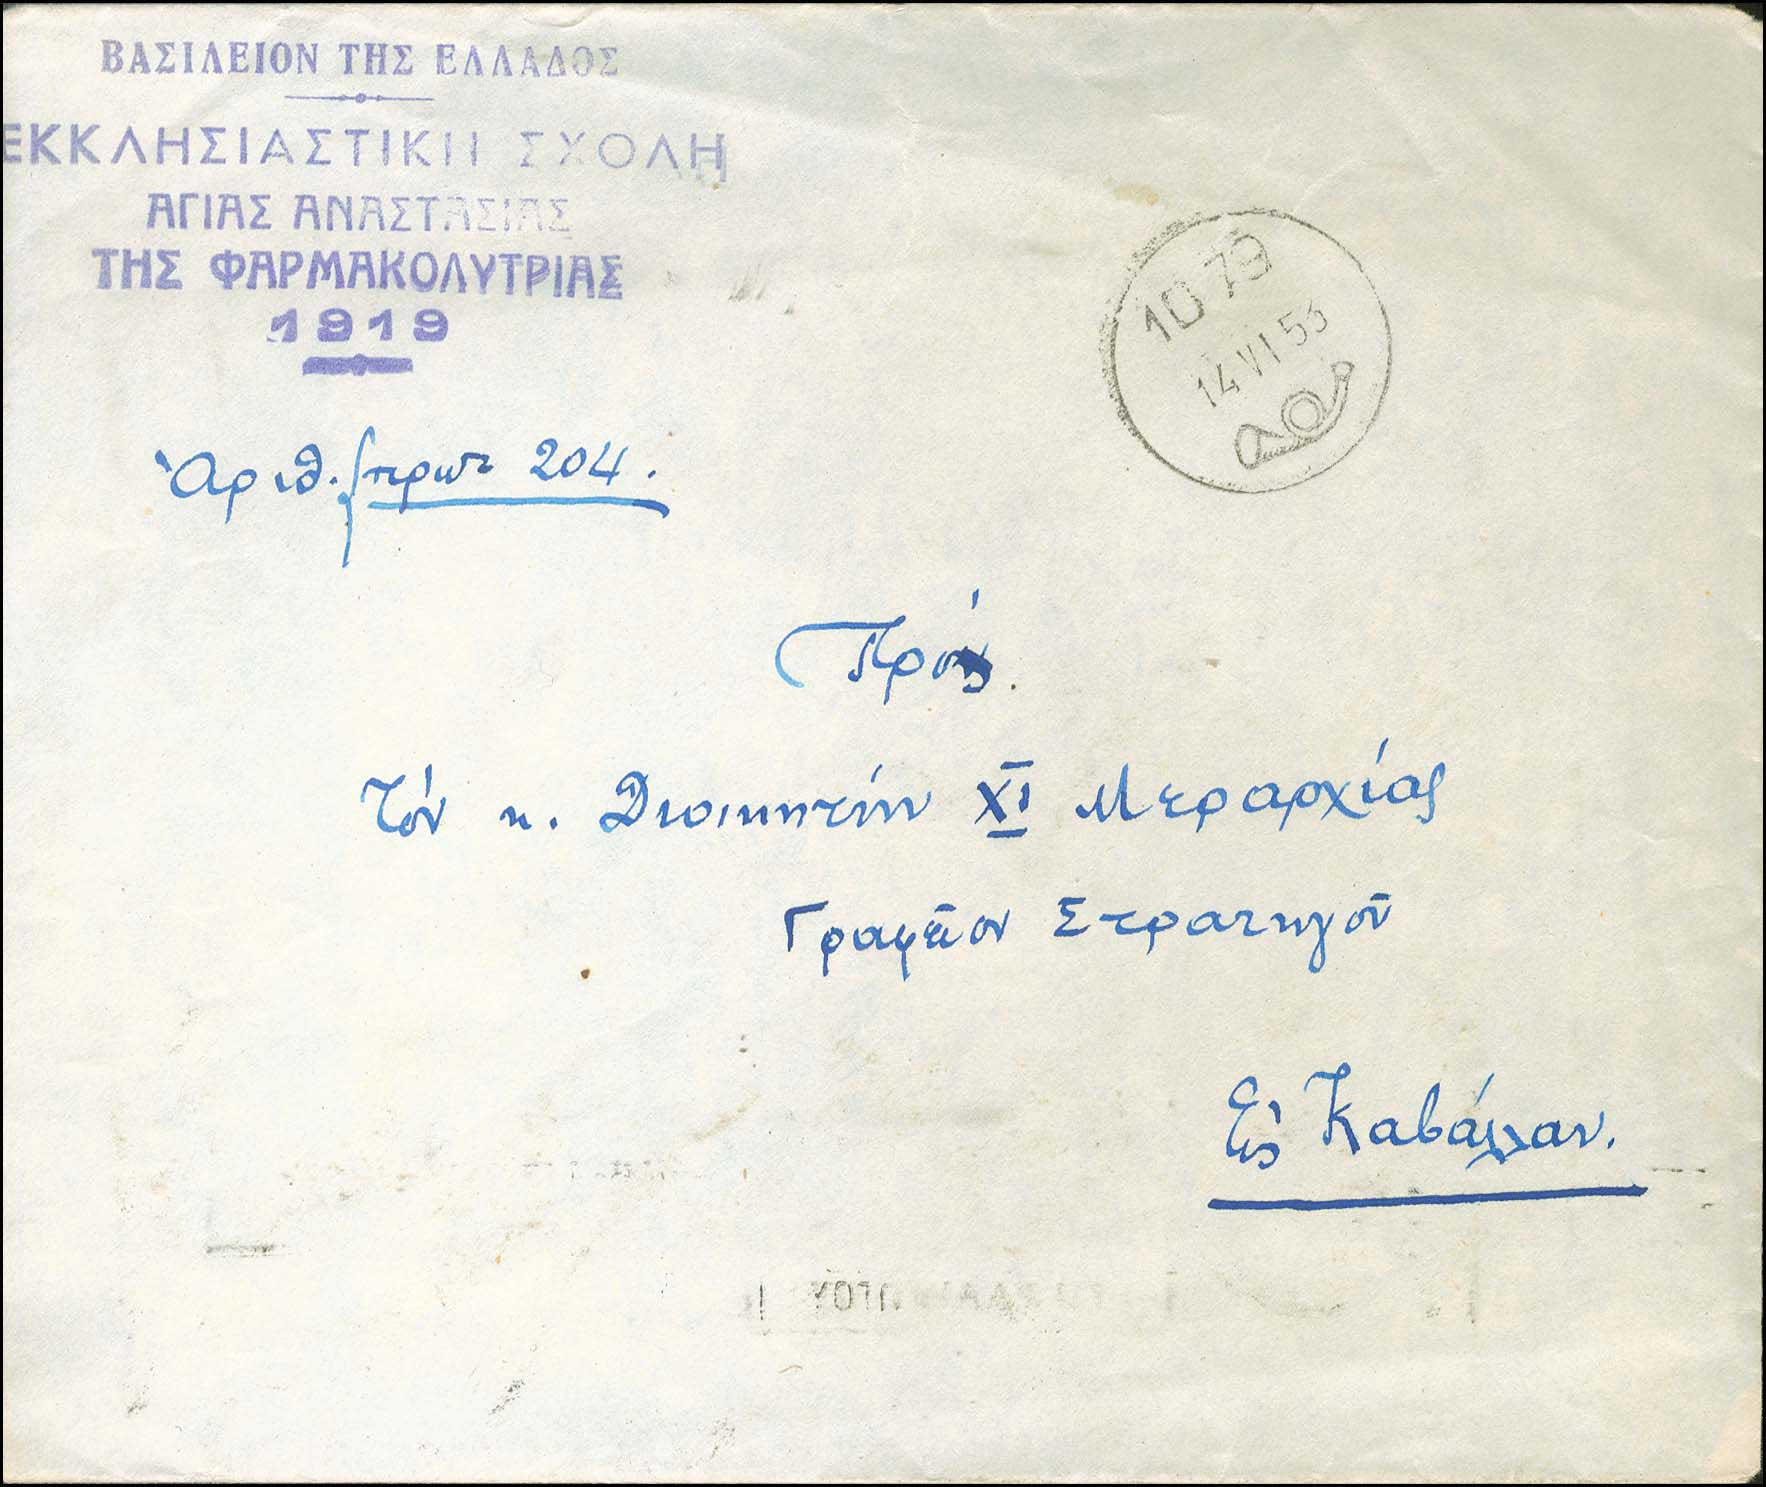 ΒΑΣΙΛΕΙΟΝ ΤΗΣ ΕΛΛΑΔΟΣ
ΕΚΚΛΗΣΙΑΣΤΙΚΗ ΣΧΟΛΗ
ΑΓΙΑΣ ΑΝΑΣΤΑΣΙΑΣ
ΤΗΣ ΦΑΡΜΑΚΟΛΥΤΡΙΑΣ
1919
10 79
14 VI 53
Ἀριθ. πρωτ 204.
Πρός.
Τόν κ. Διοικητήν XI Μεραρχίας
Γραφεῖον Στρατηγοῦ
Εἰς Καβάλλαν.